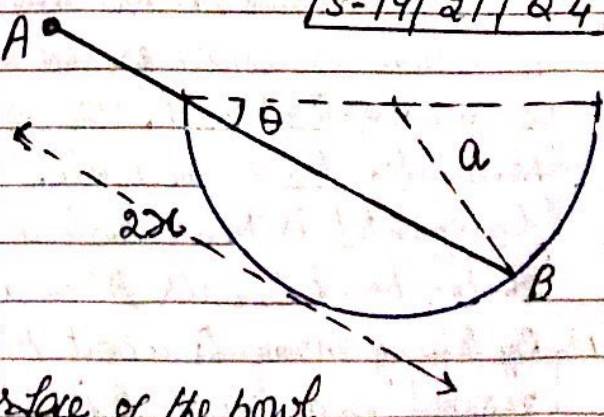 S-19/21/Q4
A
θ
a
2x
B
surface of the bowl